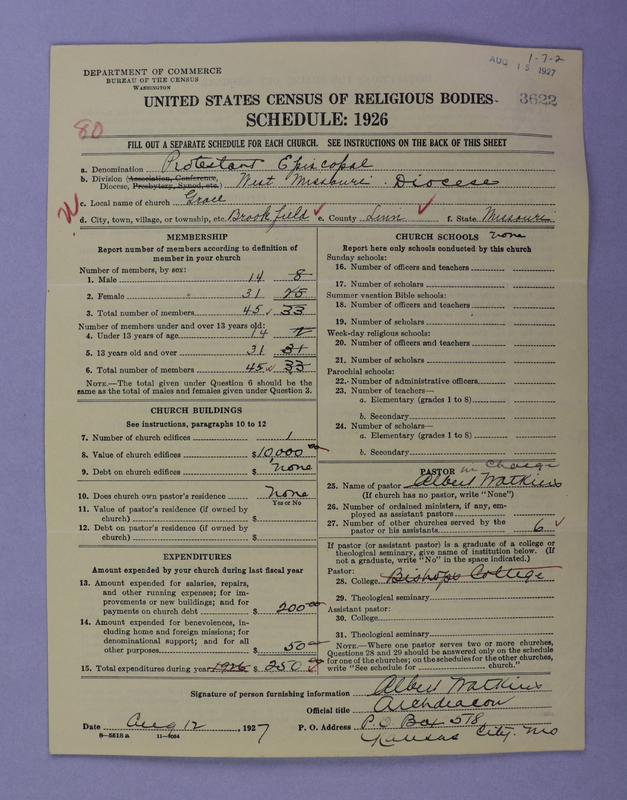 1-7-2
AUG 15 1927
DEPARTMENT OF COMMERCE
BUREAU OF THE CENSUS
WASHINGTON
UNITED STATES CENSUS OF RELIGIOUS BODIES
3622
SCHEDULE: 1926
80
FILL OUT A SEPARATE SCHEDULE FOR EACH CHURCH. SEE INSTRUCTIONS ON THE BACK OF THIS SHEET
a. Denomination Protestant Episcopal
b. Division (Association, Conference, Diocese, Presbytery, Synod, etc.) West Missouri Diocese
c. Local name of church Grace
d. City, town, village, or township, etc. Brookfield e. County Linn f. State Missouri
MEMBERSHIP
Report number of members according to definition of
member in your church
Number of members, by sex:
1. Male 14 8
2. Female 31 25
3. Total number of members 45 33
Number of members under and over 13 years old:
4. Under 13 years of age 14 2
5. 13 years old and over 31 31
6. Total number of members 45 33
NOTE.—The total given under Question 6 should be the
same as the total of males and females given under Question 3.
CHURCH BUILDINGS
See instructions, paragraphs 10 to 12
7. Number of church edifices 1
8. Value of church edifices $10,000 00
9. Debt on church edifices $ none
10. Does church own pastor's residence none
Yes or No
11. Value of pastor's residence (if owned by
church) $
12. Debt on pastor's residence (if owned by
church) $
EXPENDITURES
Amount expended by your church during last fiscal year
13. Amount expended for salaries, repairs,
and other running expenses; for im-
provements or new buildings; and for
payments on church debt $ 200 00
14. Amount expended for benevolences, in-
cluding home and foreign missions; for
denominational support; and for all
other purposes $ 50
15. Total expenditures during year 1926 $ 250
CHURCH SCHOOLS none
Report here only schools conducted by this church
Sunday schools:
16. Number of officers and teachers
17. Number of scholars
Summer vacation Bible schools:
18. Number of officers and teachers
19. Number of scholars
Week-day religious schools:
20. Number of officers and teachers
21. Number of scholars
Parochial schools:
22. Number of administrative officers
23. Number of teachers—
a. Elementary (grades 1 to 8)
b. Secondary
24. Number of scholars—
a. Elementary (grades 1 to 8)
b. Secondary
PASTOR in Charge
25. Name of pastor Albert Watkins
(If church has no pastor, write "None")
26. Number of ordained ministers, if any, em-
ployed as assistant pastors
27. Number of other churches served by the
pastor or his assistants 6
If pastor (or assistant pastor) is a graduate of a college or
theological seminary, give name of institution below. (If
not a graduate, write "No" in the space indicated.)
Pastor:
28. College Bishops College
29. Theological seminary
Assistant pastor:
30. College
31. Theological seminary
NOTE.—Where one pastor serves two or more churches,
Questions 28 and 29 should be answered only on the schedule
for one of the churches; on the schedules for the other churches,
write "See schedule for church."
Signature of person furnishing information Albert Watkins
Official title Archdeacon
Date Aug 12, 1927 P. O. Address P.O. Box 518
Kansas City. Mo